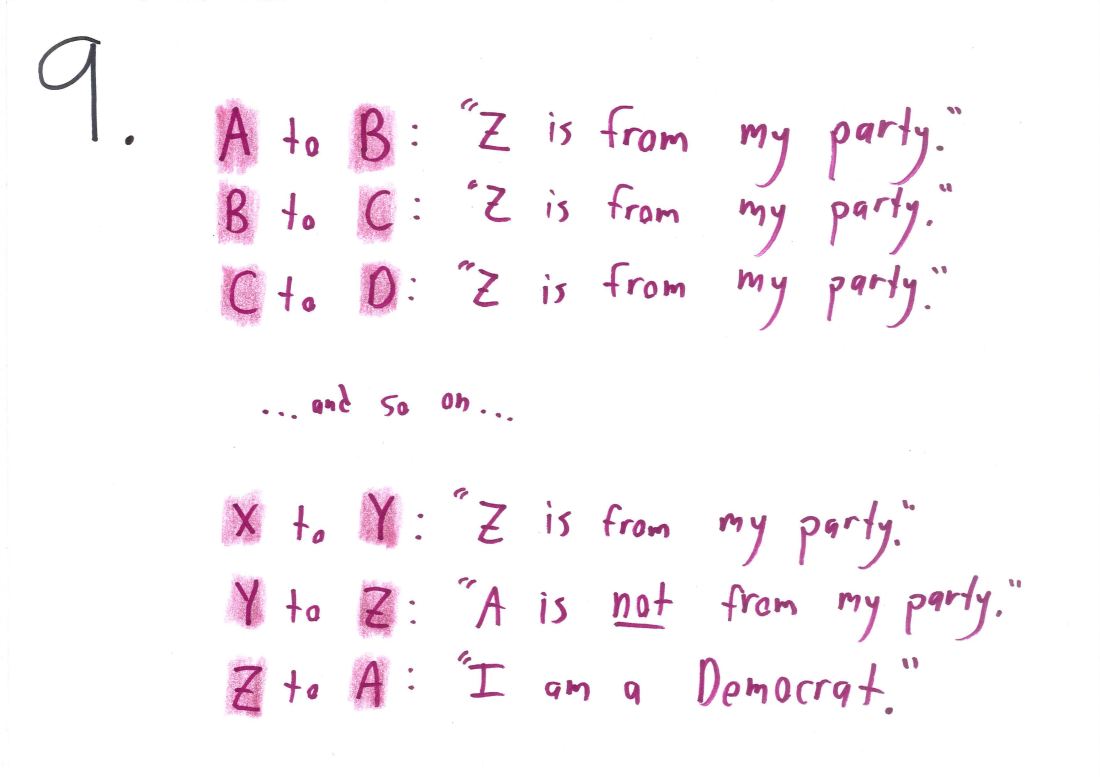 9.
A to B: "Z is from my party."
B to C: "Z is from my party."
C to D: "Z is from my party."
...and so on...
X to Y: "Z is from my party."
Y to Z: "A is not from my party."
Z to A: "I am a Democrat."